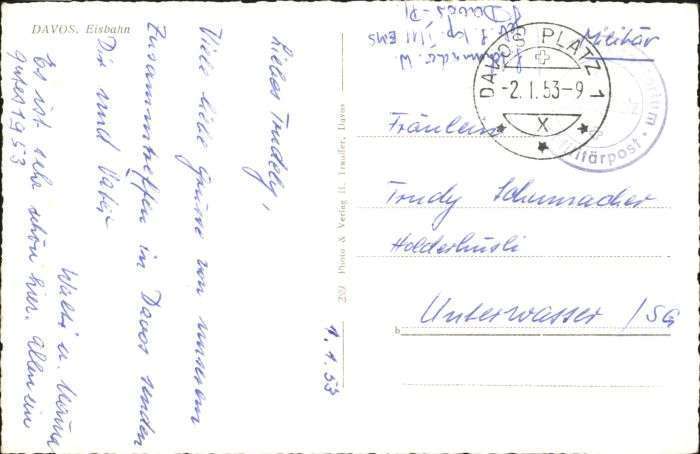 DAVOS. Eisbahn
Liebes Trudely,
Viele liebe Grüsse von unserem
Zusammentreffen in Davos senden
Dir und Vater
Walti u.
Es ist sehr schön hier. Allen ein
gutes 1953
1.1.53
209 Photo & Verlag H. Trauffer, Davos
Militär
Davos-Pl
DAVOS PLATZ 1
-2.I.53-9
X
Militärpost
Fräulein
Trudy Schumacher
Holderhüsli
Unterwasser / SG
b